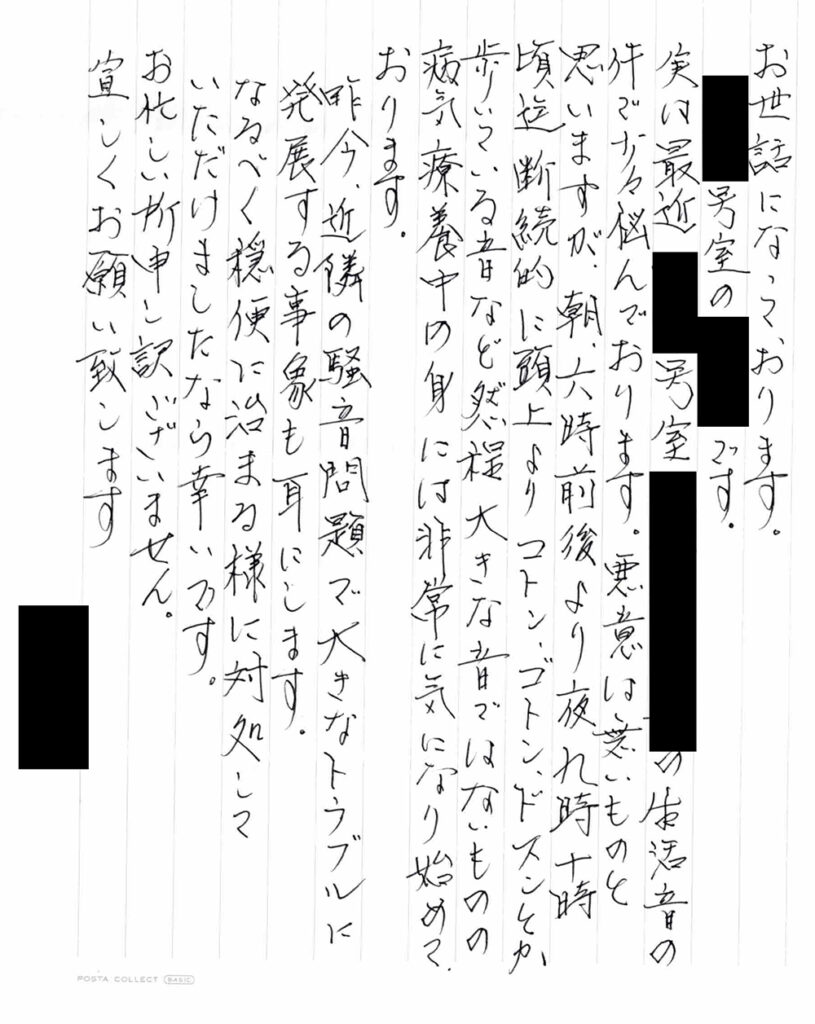 お世話になって、おります。
号室の です。
実は最近 号室 の生活音の
件で少々悩んでおります。悪意は無いものと
思いますが、朝、六時前後より夜九時十時
頃迄断続的に頭上よりコトン、ゴトン、ドスンとか
歩いている音など然程大きな音ではないものの
病気療養中の身には非常に気になり始めて、
おります。
昨今、近隣の騒音問題で大きなトラブルに
発展する事象も耳にします。
なるべく穏便に治まる様に対処して
いただけましたなら幸いです。
お忙しい所申し訳ございません。
宜しくお願い致します
POSTA COLLECT BASIC